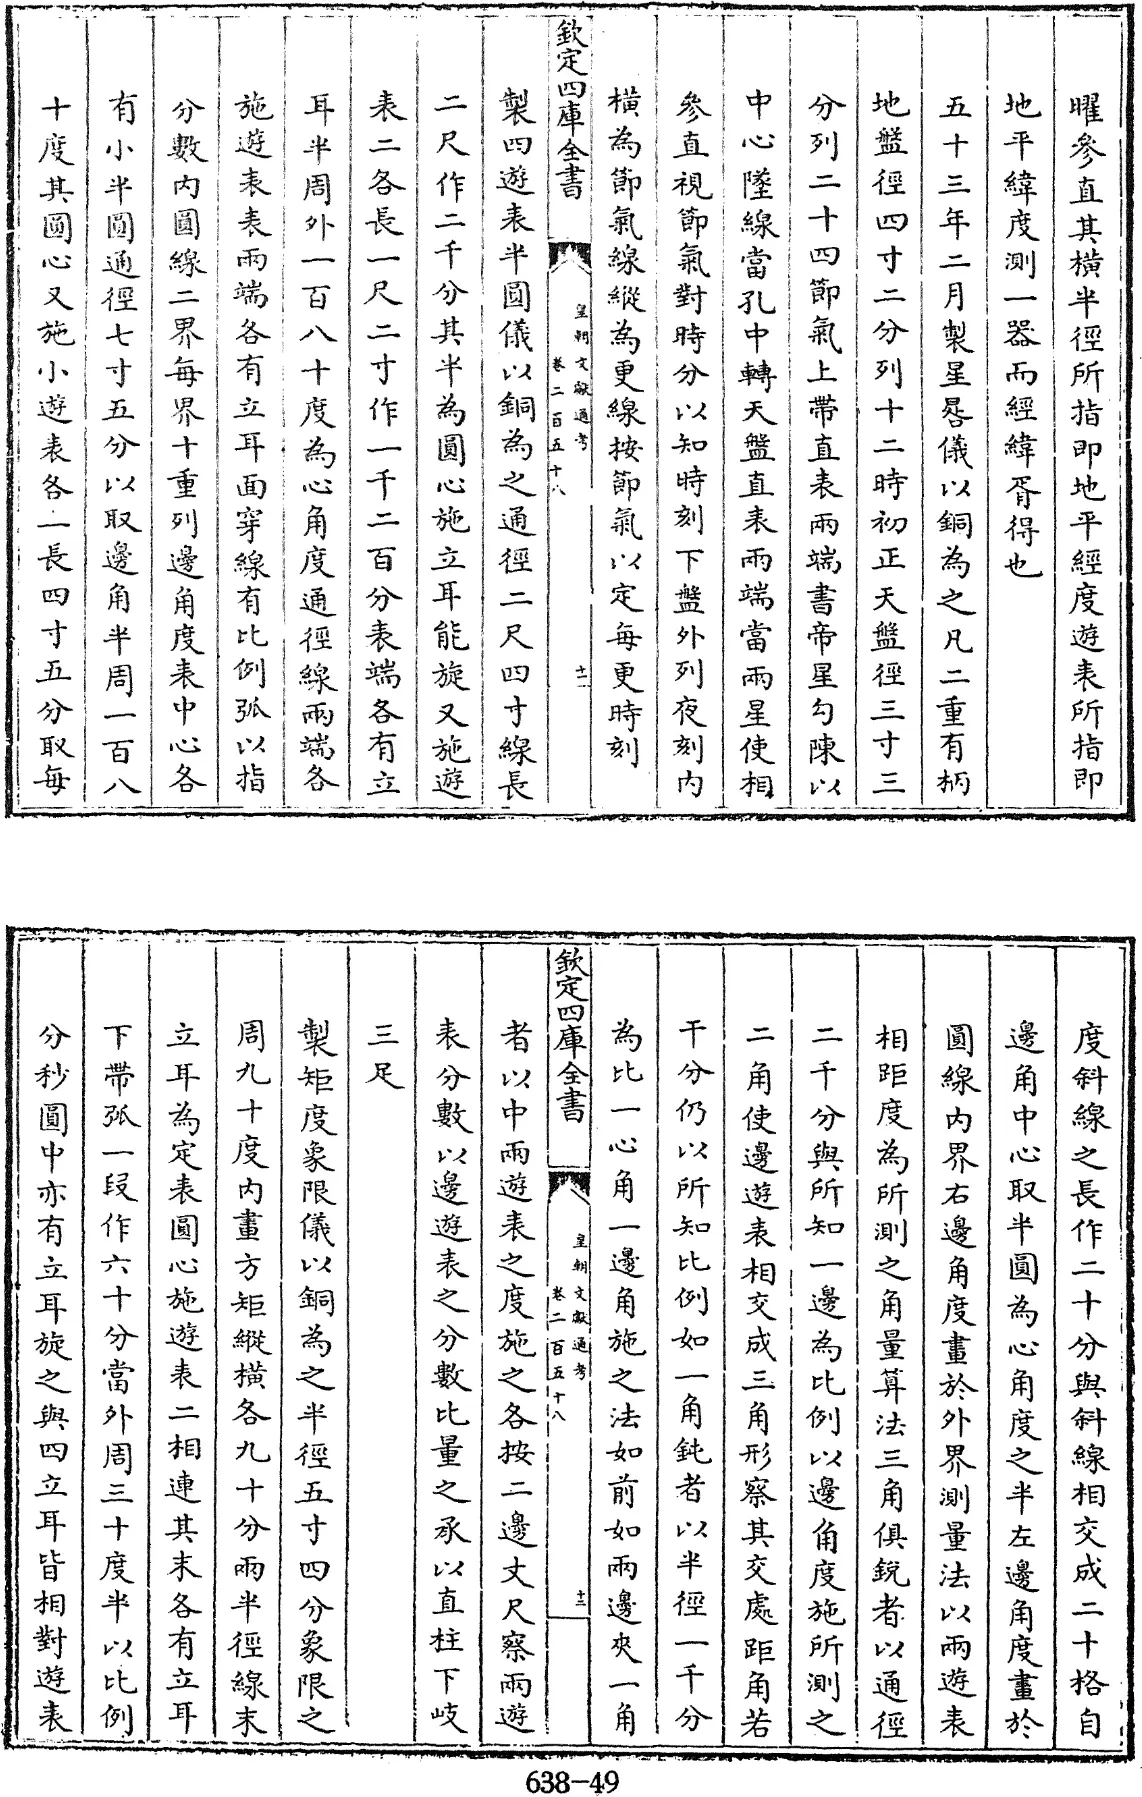 曜參直其橫半徑所指即地平經度遊表所指即
地平緯度測一器而經緯胥得也
五十三年二月製星晷儀以銅為之凡二重有柄
地盤徑四寸二分列十二時初正天盤徑三寸三
分列二十四節氣上帶直表兩端書帝星勾陳以
中心墜線當孔中轉天盤直表兩端當兩星使相
參直視節氣對時分以知時刻下盤外列夜刻內
橫為節氣線縱為更線按節氣以定每更時刻
欽定四庫全書
皇朝文獻通考
卷二百五十八
十二
製四遊表半圓儀以銅為之通徑二尺四寸線長
二尺作二千分其半為圓心施立耳能旋又施遊
表二各長一尺二寸作一千二百分表端各有立
耳半周外一百八十度為心角度通徑線兩端各
施遊表表兩端各有立耳面穿線有比例弧以指
分數內圓線二界每界十重列邊角度表中心各
有小半圓通徑七寸五分以取邊角半周一百八
十度其圓心又施小遊表各一長四寸五分取每
度斜線之長作二十分與斜線相交成二十格自
邊角中心取半圓為心角度之半左邊角度畫於
圓線內界右邊角度畫於外界測量法以兩遊表
相距度為所測之角量算法三角俱銳者以通徑
二千分與所知一邊為比例以邊角度施所測之
二角使邊遊表相交成三角形察其交處距角若
干分仍以所知比例如一角鈍者以半徑一千分
為比一心角一邊角施之法如前如兩邊夾一角
欽定四庫全書
皇朝文獻通考
卷二百五十八
十三
者以中兩遊表之度施之各按二邊丈尺察兩遊
表分數以邊遊表之分數比量之承以直柱下岐
三足
製矩度象限儀以銅為之半徑五寸四分象限之
周九十度內畫方矩縱橫各九十分兩半徑線末
立耳為定表圓心施遊表二相連其末各有立耳
下帶弧一段作六十分當外周三十度半以比例
分秒圓中亦有立耳旋之與四立耳皆相對遊表
638-49